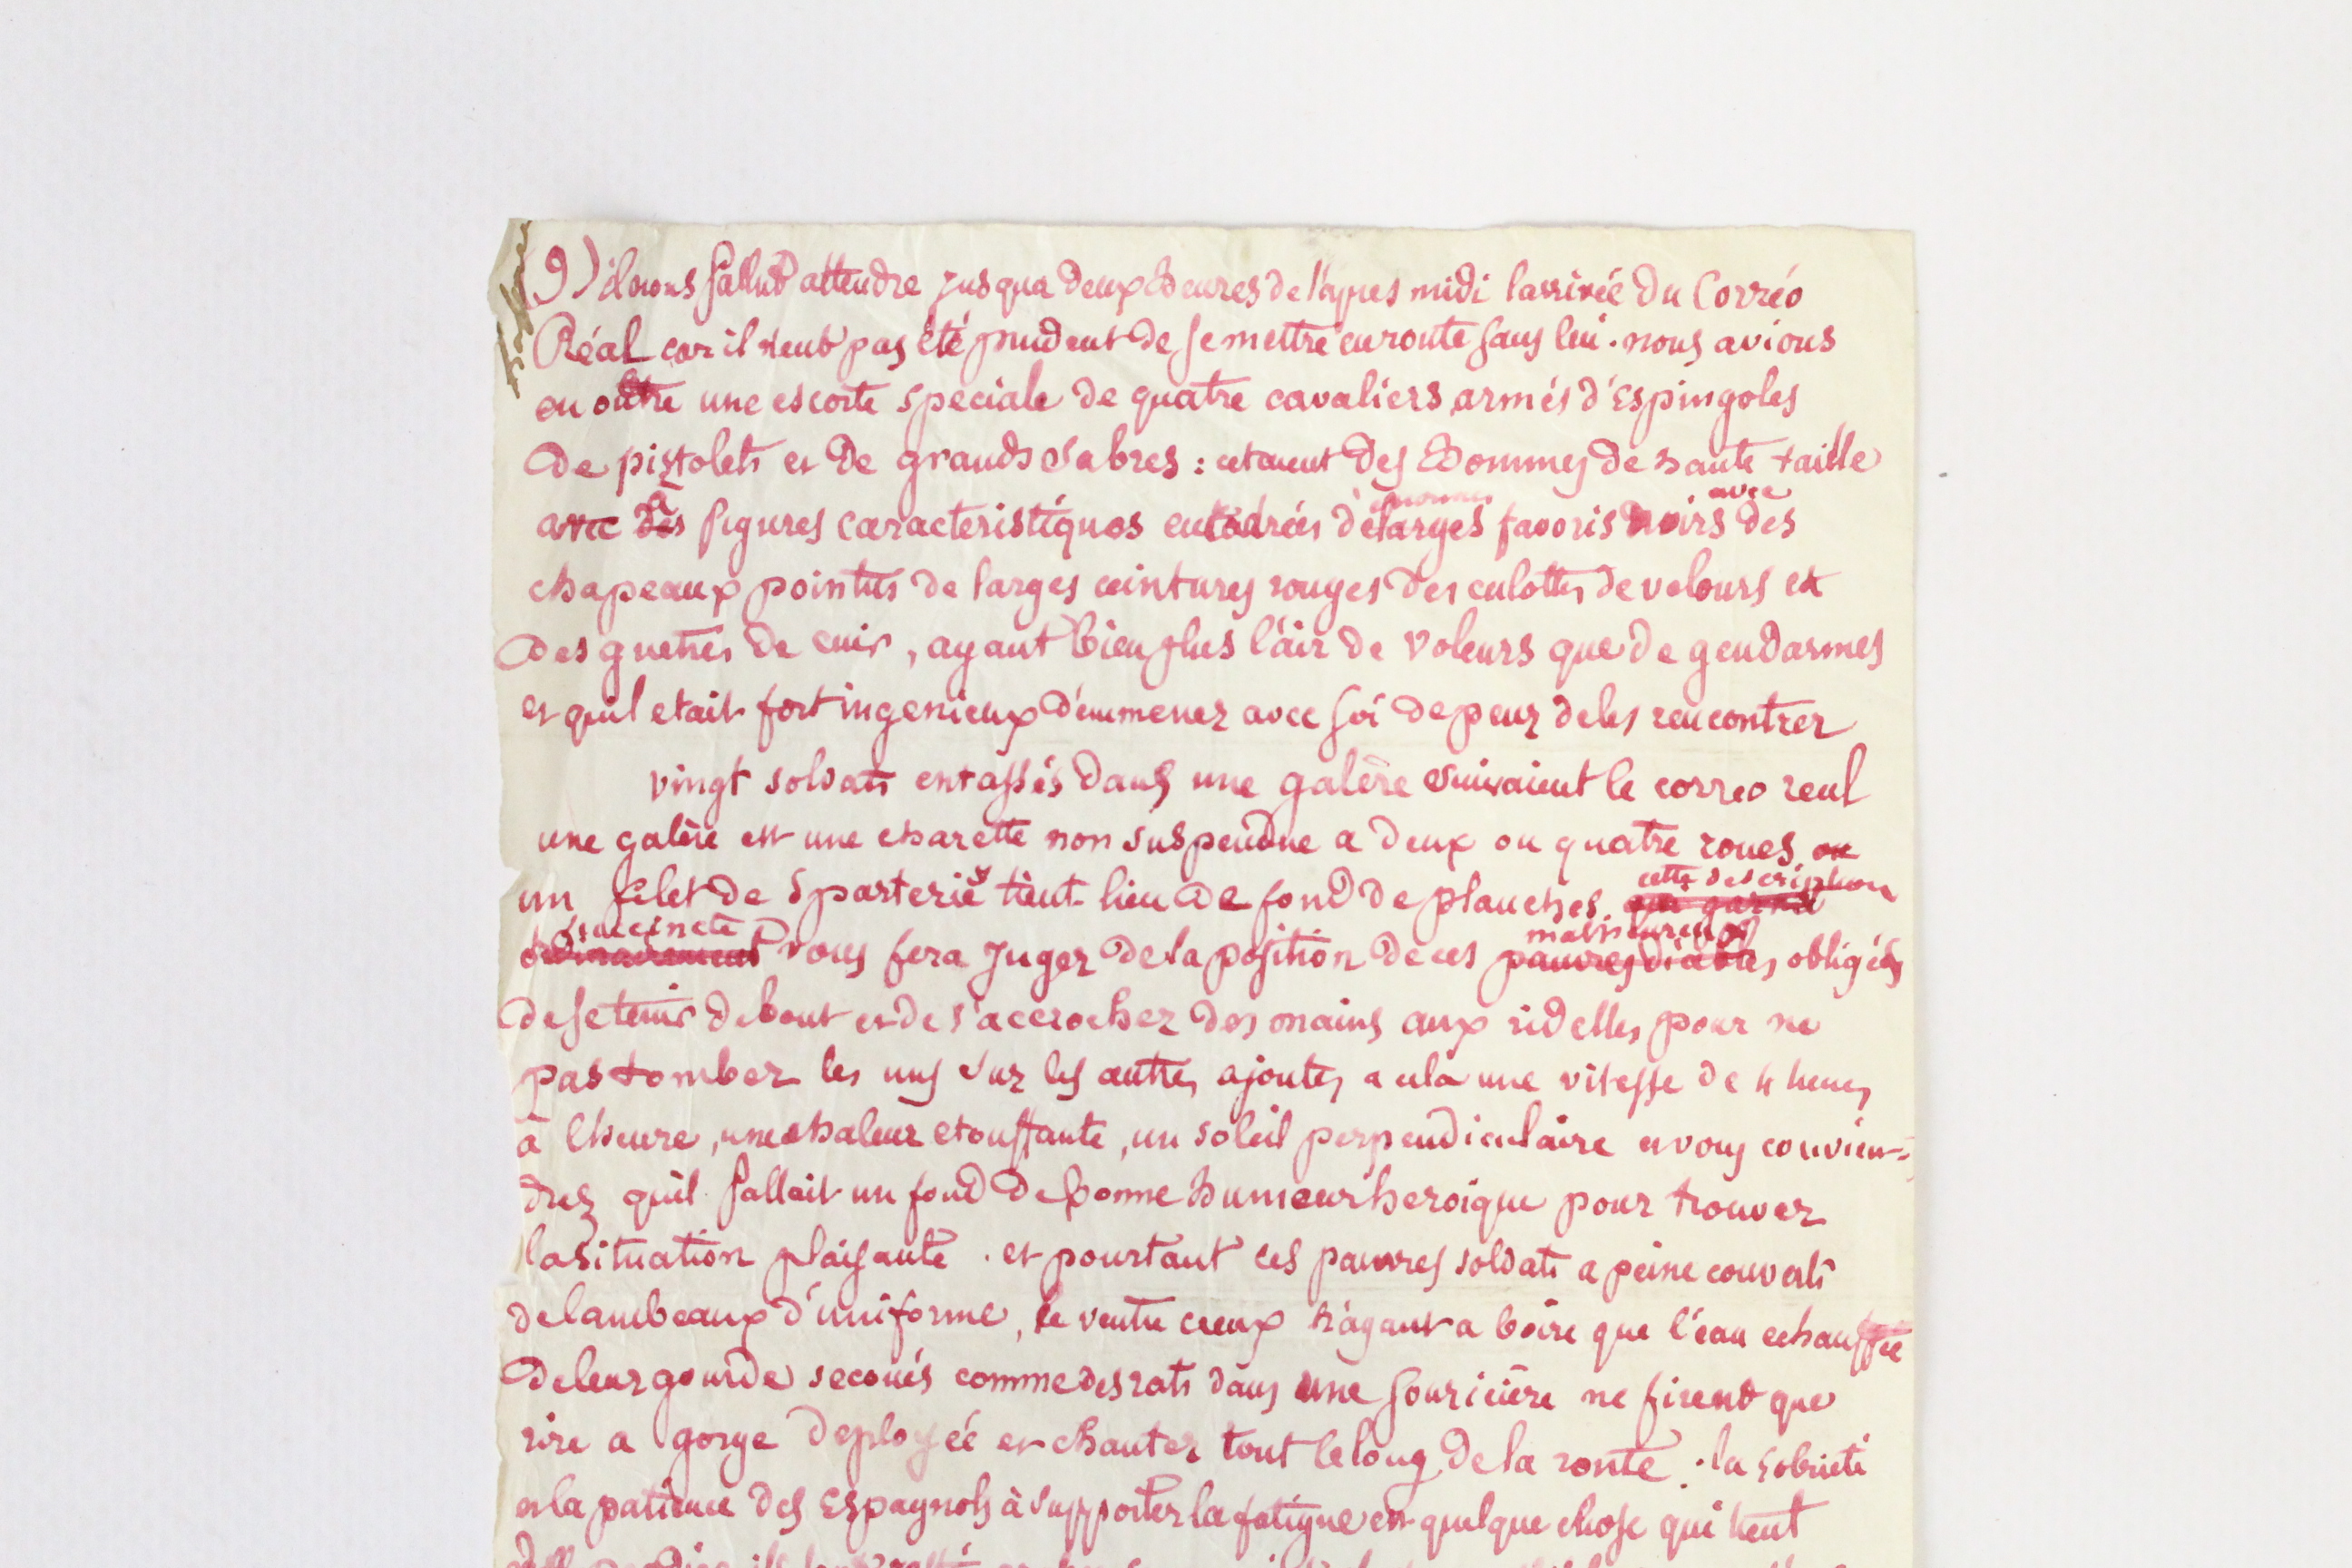 9) il nous fallut attendre jusqua deux heures de l'apres midi larrivée du Corréo
Réal car il neut pas été prudent de se mettre en route sans lui. nous avions
en outre une escorte speciale de quatre cavaliers armés d'Espingoles
De pistolets et De grands sabres : cetaient des hommes de haute taille
enormes avec
avec des a figures caracteristiques encadrées de larges favoris noirs des
chapeaux pointus de larges ceintures rouges des culottes de velours et
des guetres de cuir, ayant bien plus l'air de voleurs que de gendarmes
et quil etait fort ingenieux d'emmener avec soi de peur de les rencontrer
vingt soldats entassés dans une galère suivaient le correo real
une galère est une charette non suspendue a deux ou quatre roues ou
un filet de sparterie tient lieu de fond de planches. cette description
succincte malheureux
ordinairement vous fera juger de la position de ces pauvres diables obligés
de se tenir debout et de s'accrocher des mains aux ridelles pour ne
pas tomber les uns sur les autres ajoutez a cela une vitesse de 4 lieues
à l'heure, une chaleur etouffante, un soleil perpendiculaire et vous convien-
drez quil fallait un fond de bonne humeur heroique pour trouver
la situation plaisante. et pourtant ces pauvres soldats a peine couverts
de lambeaux d'uniforme, le ventre creux n'ayant a boire que l'eau echauffée
de leur gourde secoués comme des rats dans une souricière ne firent que
rire a gorge deployée et chanter tout le long de la route. la sobrieté
et la patience des Espagnols à supporter la fatigue est quelque chose qui tient